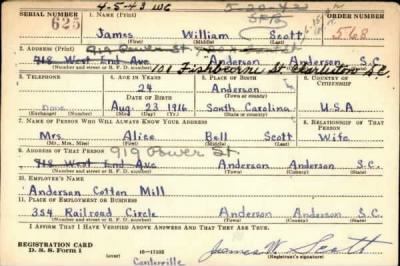 4-5-43 WG 5-20-42
SERIAL NUMBER 1. NAME (Print) ORDER NUMBER
625 James William Scott 568
(First) (Middle) (Last)
2. ADDRESS (Print) 919 Power St
718 West End Ave Anderson Anderson S.C.
101 Fishburne St Charleston S.C.
(Number and street or R. F. D. number) (Town) (County) (State)
3. TELEPHONE 4. AGE IN YEARS 5. PLACE OF BIRTH 6. COUNTRY OF CITIZENSHIP
24 Anderson
DATE OF BIRTH (Town or county)
None Aug. 23 1916 South Carolina U.S.A
(Exchange) (Number) (Mo.) (Day) (Yr.) (State or country)
7. NAME OF PERSON WHO WILL ALWAYS KNOW YOUR ADDRESS 8. RELATIONSHIP OF THAT PERSON
Mrs. Alice Bell Scott Wife
(Mr., Mrs., Miss) (First) (Middle) (Last)
9. ADDRESS OF THAT PERSON 919 Power St
718 West End Ave Anderson Anderson S.C.
(Number and street or R. F. D. number) (Town) (County) (State)
10. EMPLOYER'S NAME
Anderson Cotton Mill
11. PLACE OF EMPLOYMENT OR BUSINESS
354 Railroad Circle Anderson Anderson S.C.
(Number and street or R. F. D. number) (Town) (County) (State)
I AFFIRM THAT I HAVE VERIFIED ABOVE ANSWERS AND THAT THEY ARE TRUE.
REGISTRATION CARD
D. S. S. Form 1 (over) 16-17105 James W. Scott
(Registrant's signature)
Centerville